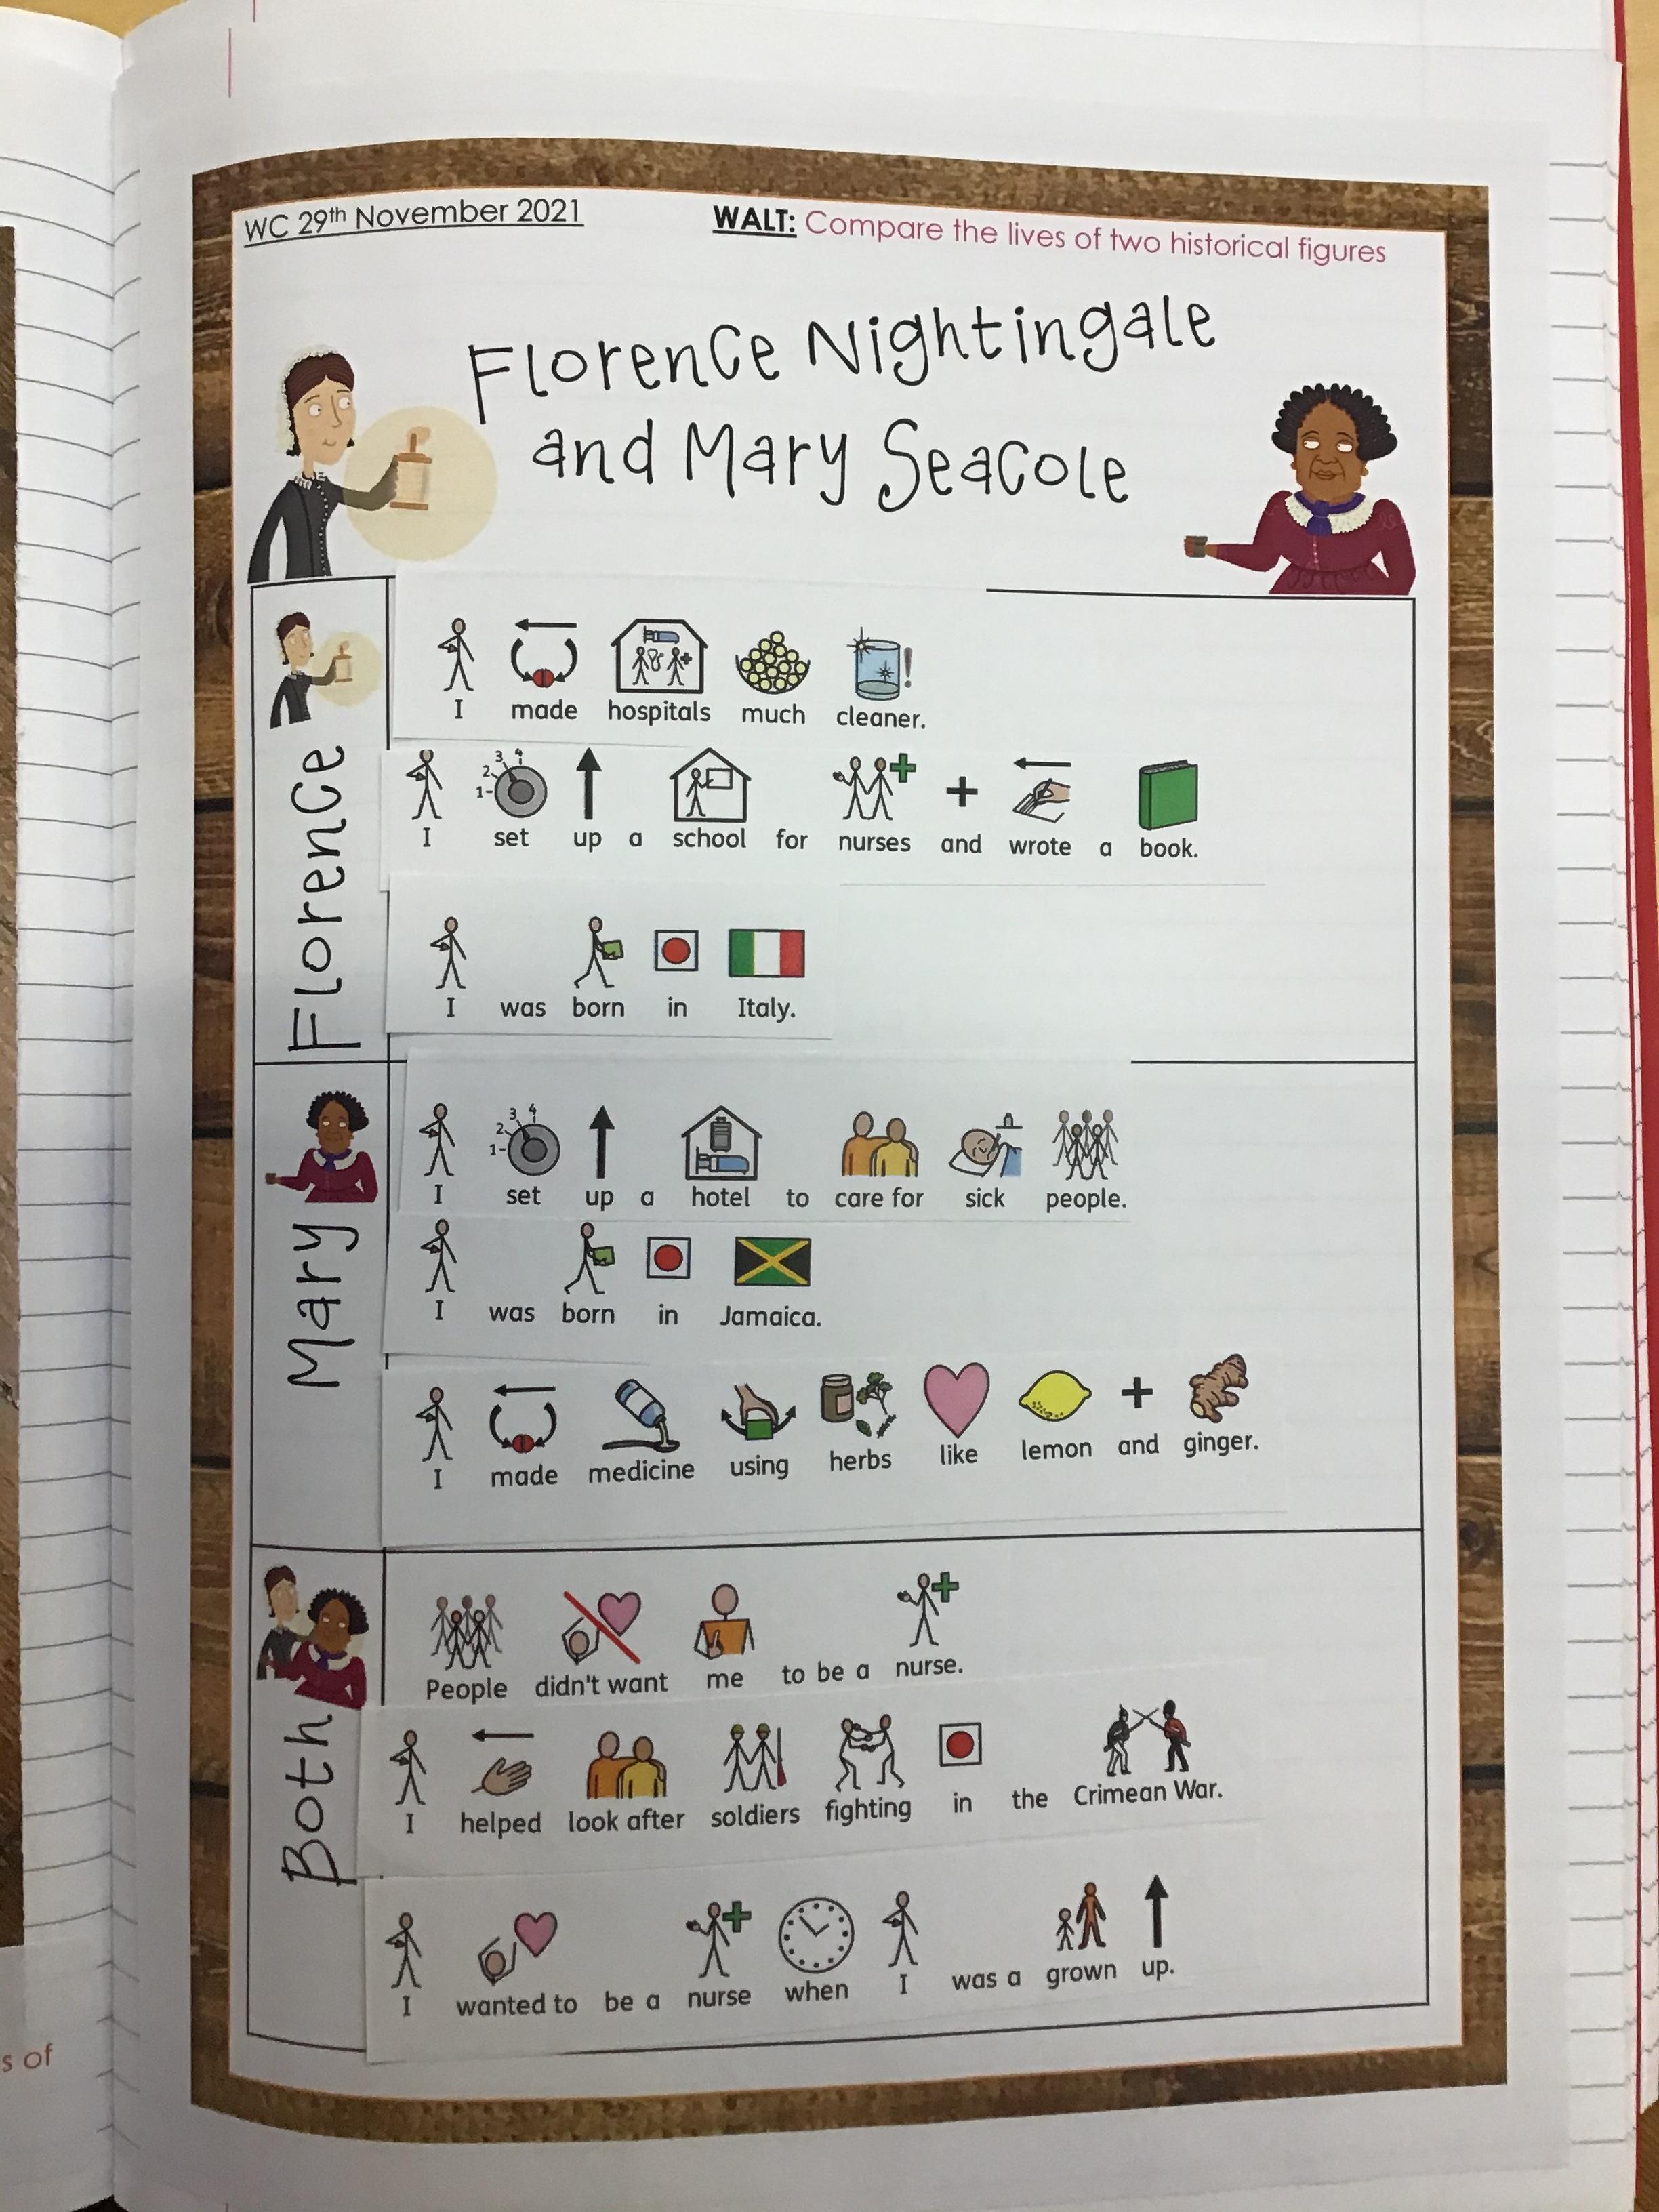 WC 29th November 2021
WALT: Compare the lives of two historical figures
Florence Nightingale
and Mary Seacole
Florence
I made hospitals much cleaner.
1- 2 3 4
I set up a school for nurses and wrote a book.
I was born in Italy.
Mary
1- 2 3 4
I set up a hotel to care for sick people.
I was born in Jamaica.
I made medicine using herbs like lemon and ginger.
Both
People didn't want me to be a nurse.
I helped look after soldiers fighting in the Crimean War.
I wanted to be a nurse when I was a grown up.
s of